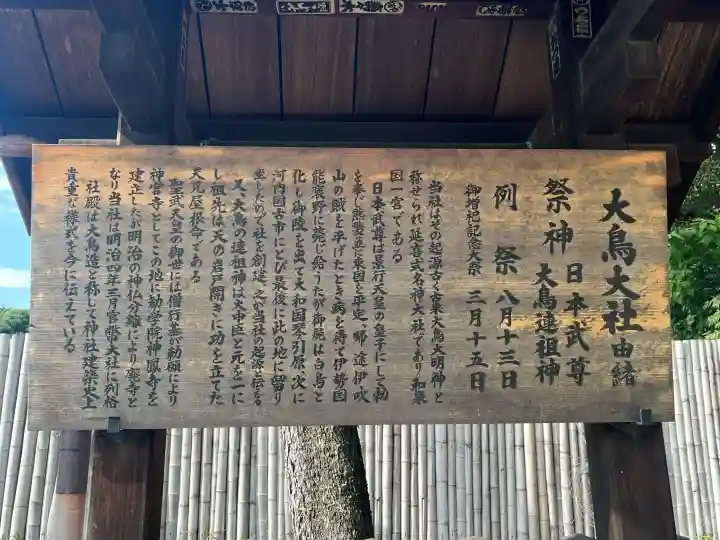 大鳥大社由緒
祭神 日本武尊
大鳥連祖神
例祭 八月十三日
御増祀記念大祭 三月十五日
当社はその起源古く古来大鳥大明神と
称せられ延喜式名神大社であり和泉
国一宮である
日本武尊は景行天皇の皇子にして勅
を奉じ熊襲並に東国を平定一帰途伊吹
山の賊を平げたとき病を得て伊勢国
能褒野に薨じ給うたが御屍は白鳥と
化し御陵を出て大和国琴引原次に
河内国古市にとび最後に此の地に留り
坐したので社を創建之が当社の起源と伝える
又大鳥の連祖神は大中臣と元を一に
し祖先は天の岩戸開きに功を立てた
天児屋根命である
聖武天皇の御世には僧行基が勅願により
神宮寺としてこの地に勧学院神鳳寺を
建立したが明治の神仏分離により廃寺と
なり当社は明治四年三月官幣大社に列格
社殿は大鳥造と称して神社建築史上
貴重な様式を今に伝えている